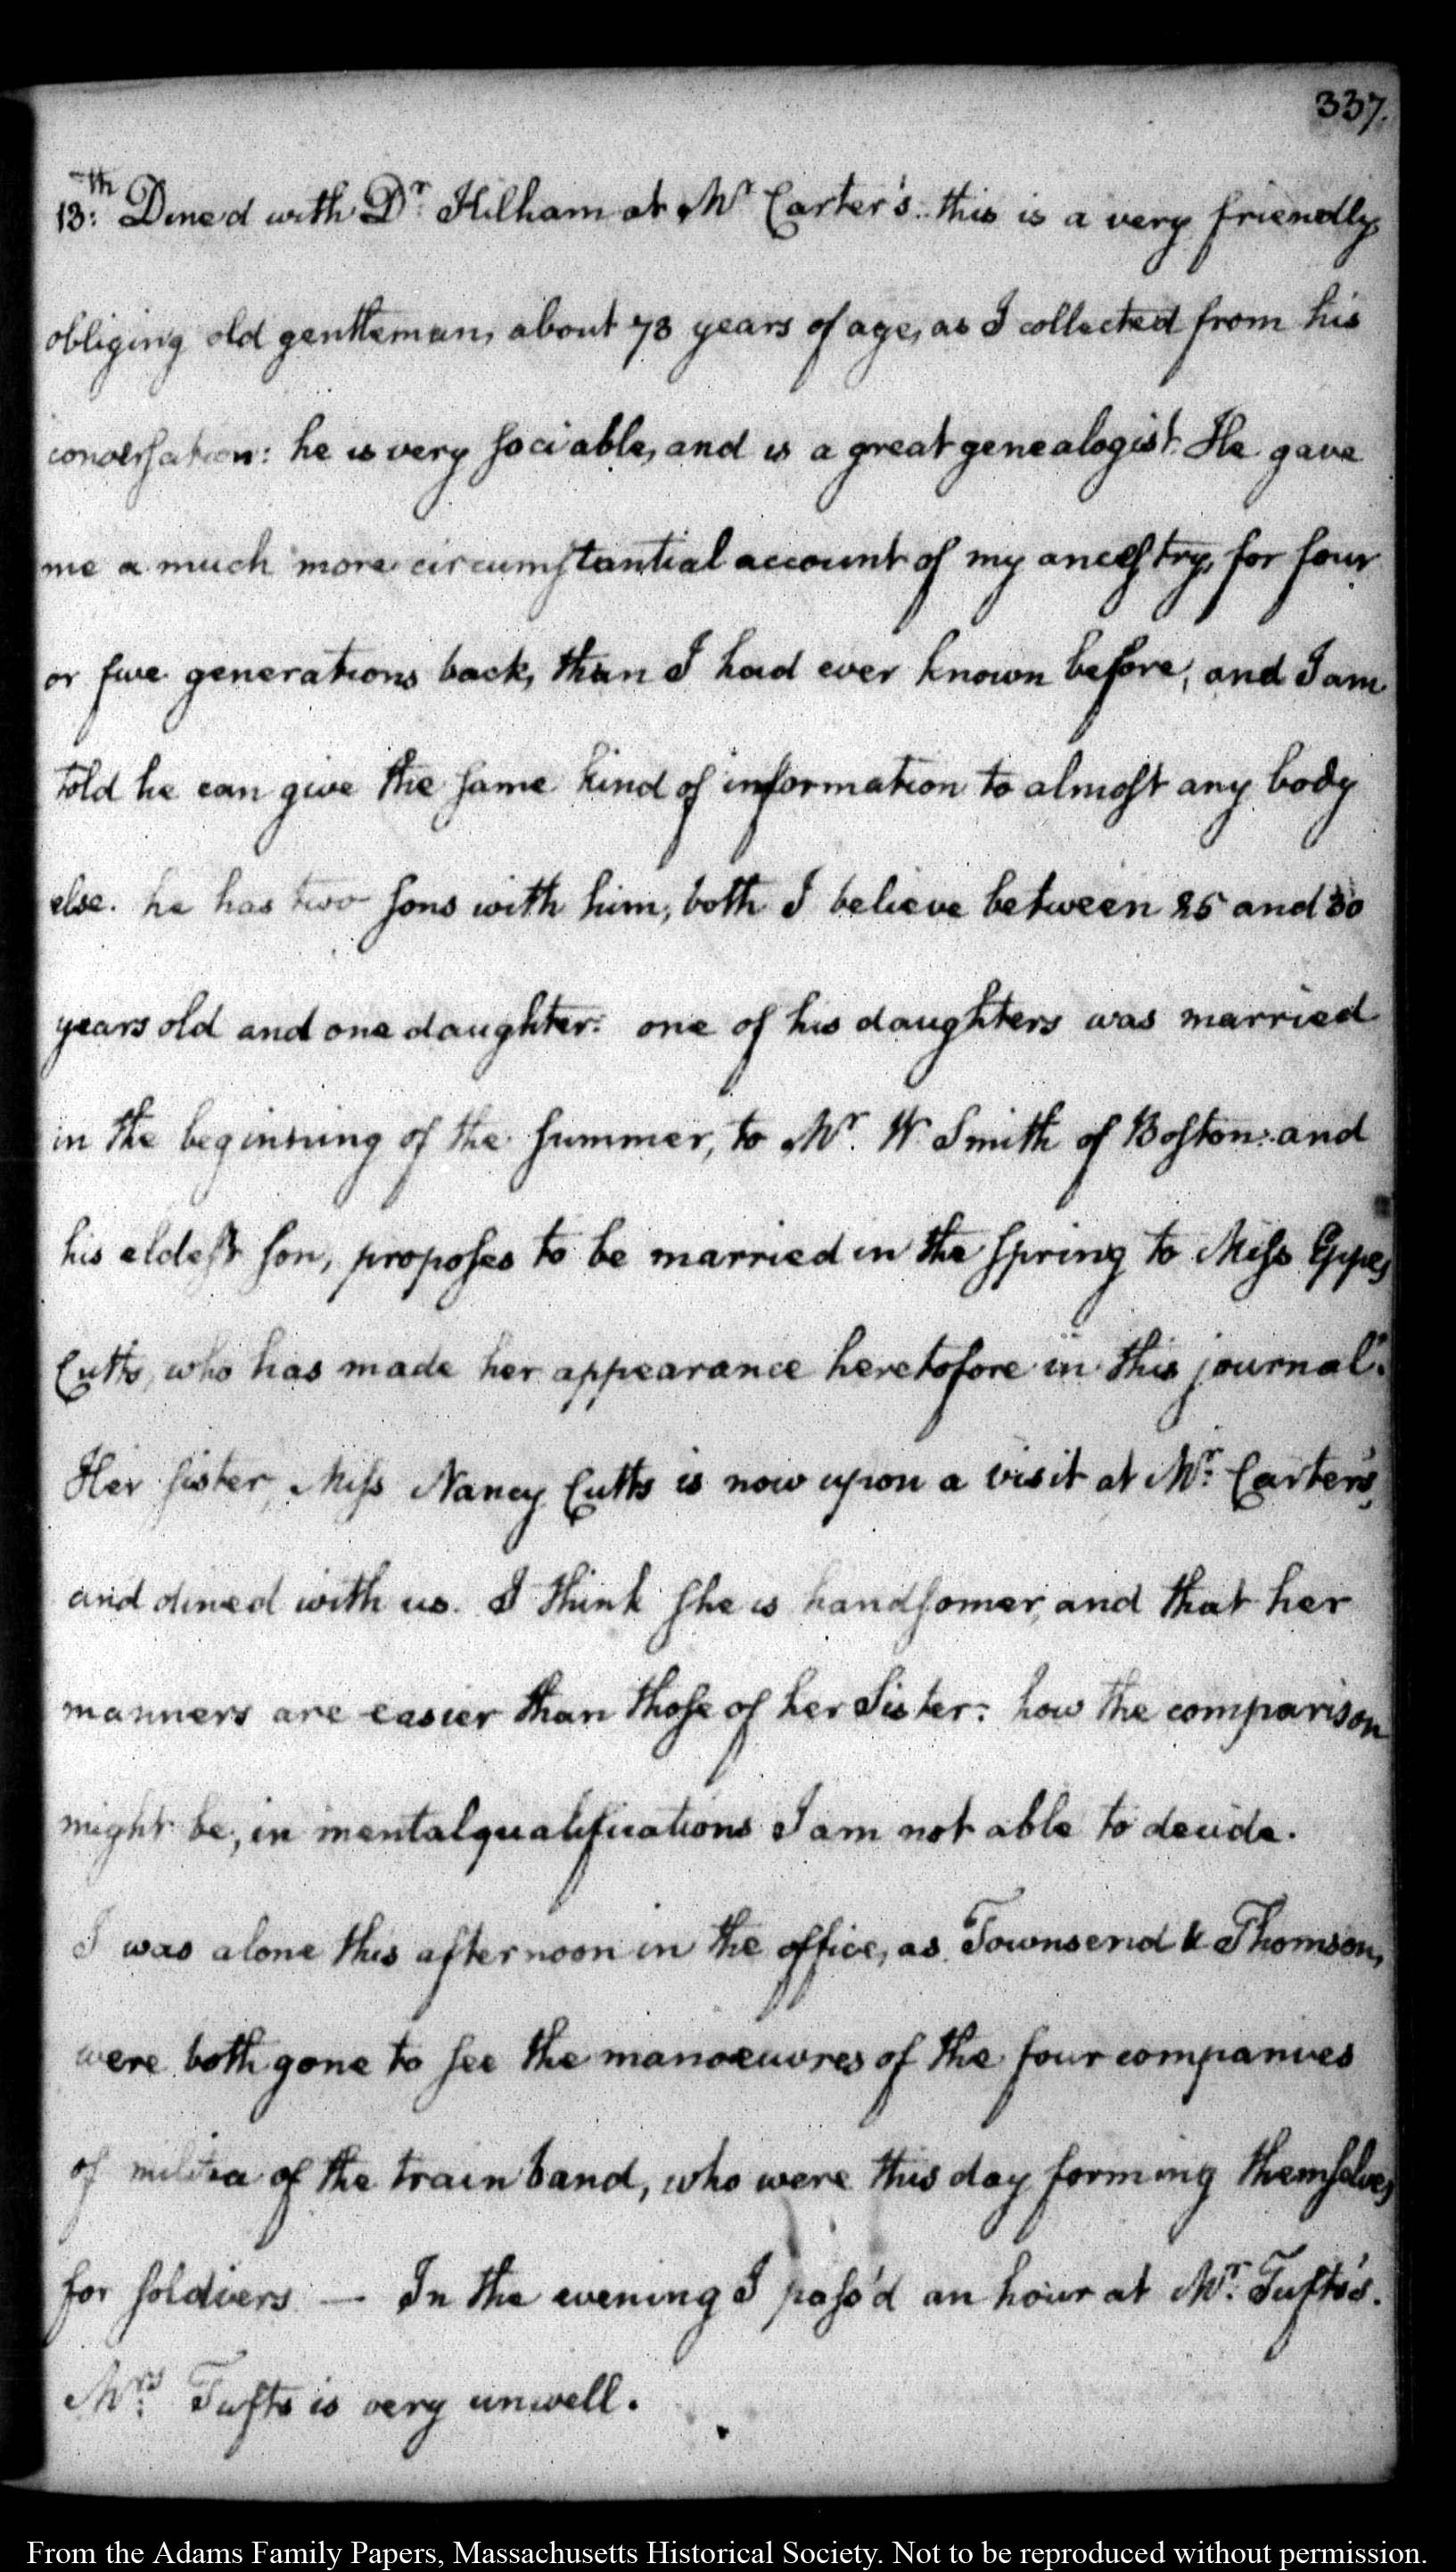 337.
13:th Dined with Dr. Kilham at Mr Carter's: this is a very friendly,
obliging old gentleman, about 73 years of age, as I collected from his
conversation: he is very sociable, and is a great genealogist. He gave
me a much more circumstantial account of my ancestry, for four
or five generations back, than I had ever known before, and I am
told he can give the same kind of information to almost any body
else. he has two sons with him, both I believe between 25 and 30
years old and one daughter: one of his daughters was married
in the beginning of the summer, to Mr. W Smith of Boston: and
his eldest son, proposes to be married in the spring to Miss Eppes
Cutts, who has made her appearance heretofore in this journal.
Her sister, Miss Nancy Cutts is now upon a visit at Mr: Carter's,
and dined with us. I think she is handsomer, and that her
manners are easier than those of her Sister: how the comparison
might be, in mental qualifications I am not able to decide.
I was alone this afternoon in the office, as Townsend & Thomson,
were both gone to see the manoeuvres of the four companies
of militia of the train band, who were this day forming themselves
for soldiers — In the evening I pass'd an hour at Mr: Tufts's.
Mrs: Tufts is very unwell.
From the Adams Family Papers, Massachusetts Historical Society. Not to be reproduced without permission.